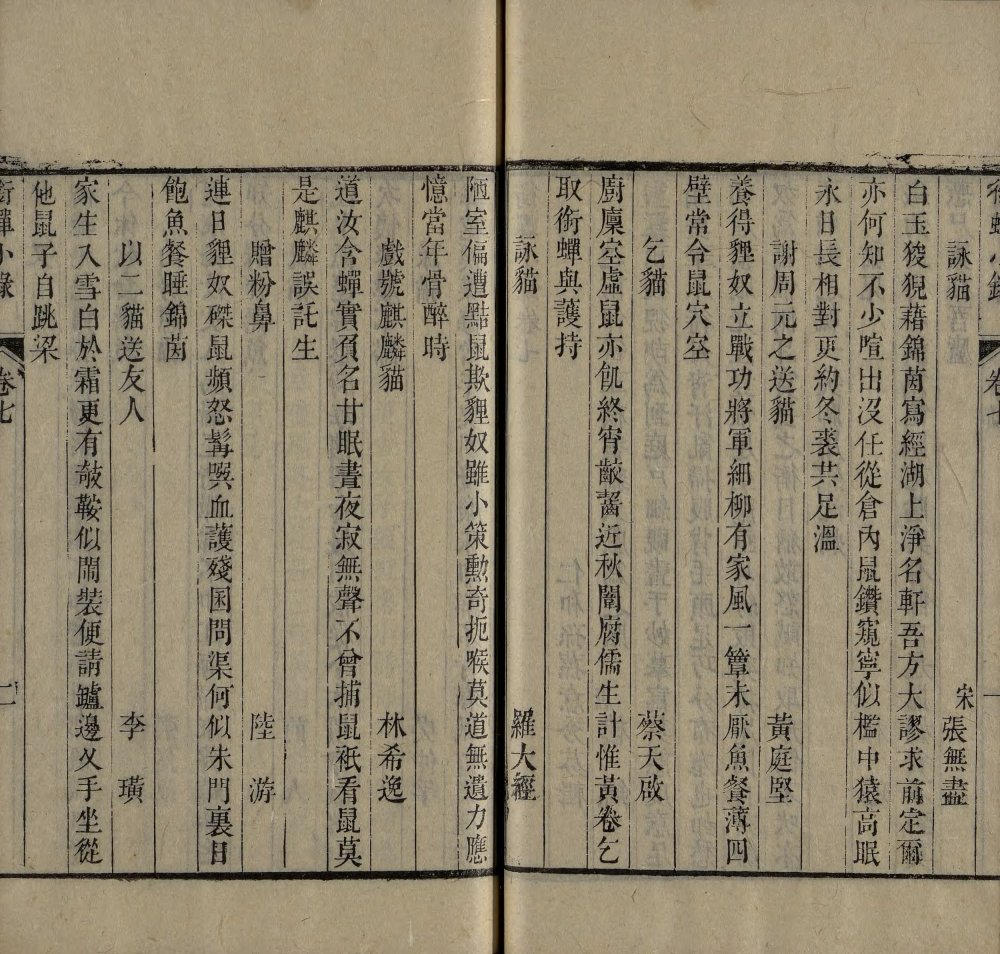 詠貓　宋張無盡
白玉狻猊藉錦茵寫經湖上淨名軒吾方大謬求前定爾
亦何知不少喧出沒任從倉內鼠鑽窺寧似檻中猿高眠
永日長相對更約冬裘共足溫
謝周元之送貓　黃庭堅
養得貍奴立戰功將軍細柳有家風一簞未厭魚餐薄四
壁常令鼠穴空
乞貓　蔡天啟
廚廩空虛鼠亦飢終宵齩齧近秋闈腐儒生計惟黃卷乞
取銜蟬與護持
詠貓　羅大經
陋室偏遭點鼠欺貍奴雖小策勳奇扼喉莫道無遺力應
憶當年骨醉時
戲號麒麟貓　林希逸
道汝含蟬實負名甘眠晝夜寂無聲不曾捕鼠祇看鼠莫
是麒麟誤託生
贈粉鼻　陸游
連日貍奴磔鼠頻怒髯噀血護殘囷問渠何似朱門裏日
飽魚餐睡錦茵
以二貓送友人　李璜
家生入雪白於霜更有攲鞍似鬧裝便請鑪邊叉手坐從
他鼠子自跳梁
銜蟬小錄　卷七　二